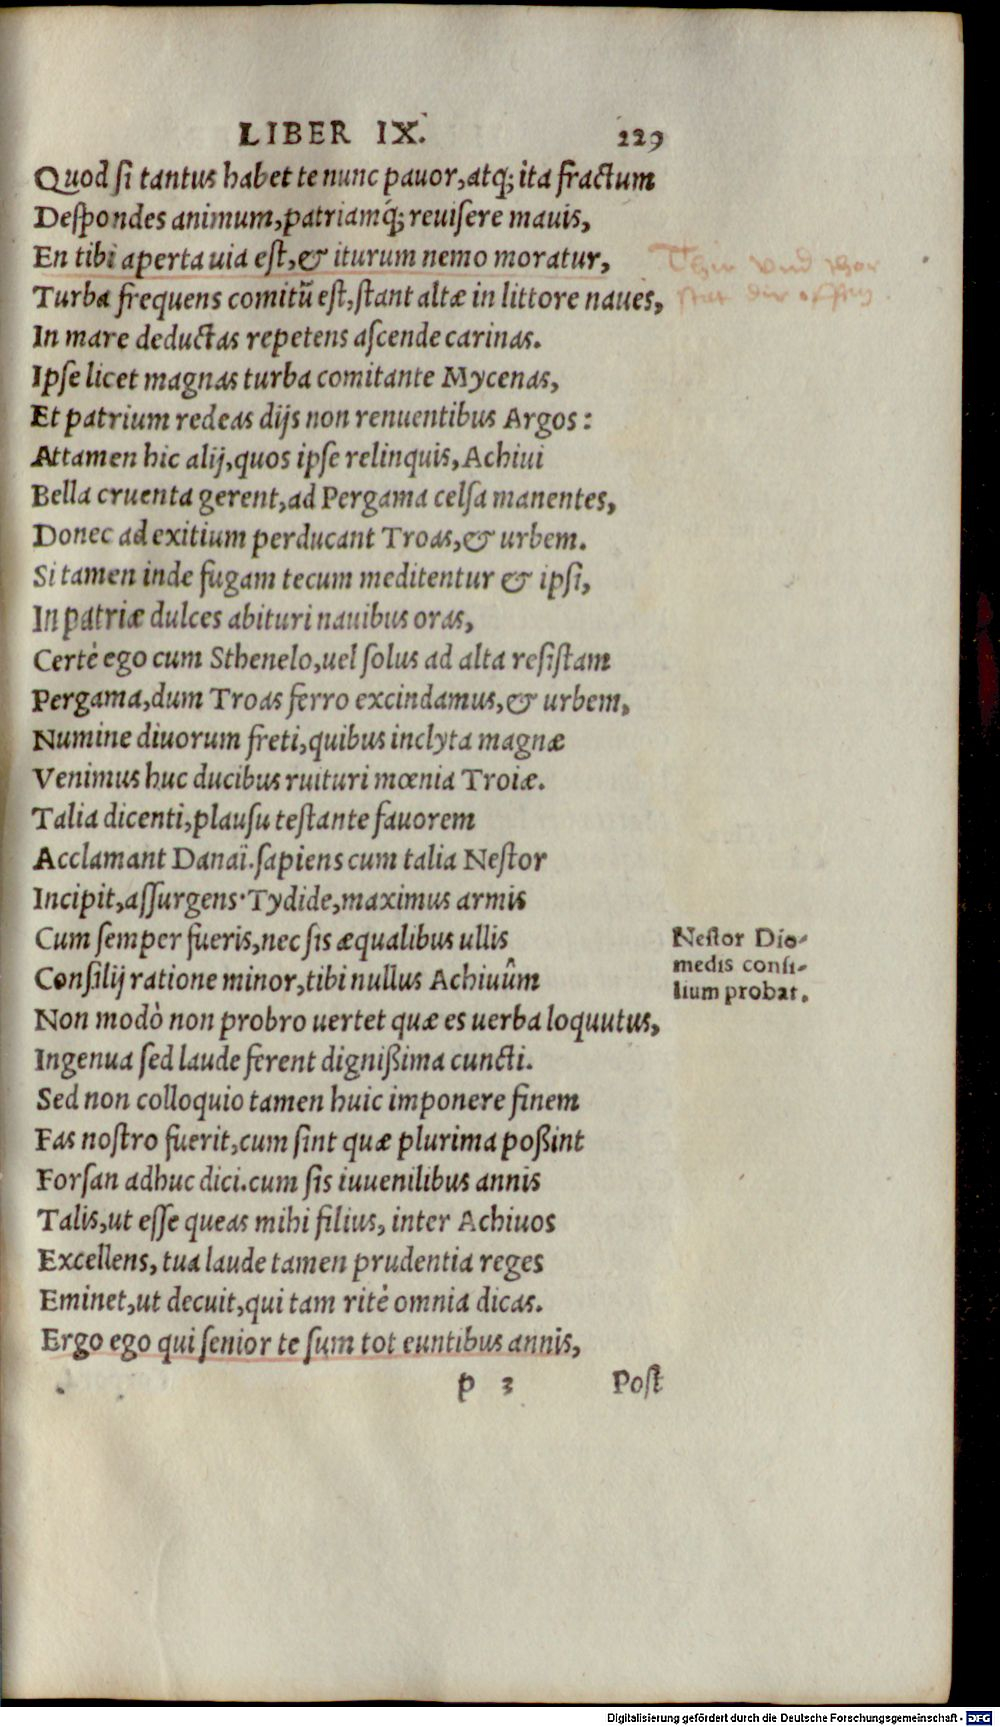 LIBER IX. 229
Quod ſi tantus habet te nunc pauor, atq; ita fractum
Deſpondes animum, patriamq́; reuiſere mauis,
En tibi aperta uia eſt, & iturum nemo moratur,
Thür vnd thor
ſtat dir offen.
Turba frequens comitũ eſt, ſtant altæ in littore naues,
In mare deductas repetens aſcende carinas.
Ipſe licet magnas turba comitante Mycenas,
Et patrium redeas dijs non renuentibus Argos:
Attamen hic alij, quos ipſe relinquis, Achiui
Bella cruenta gerent, ad Pergama celſa manentes,
Donec ad exitium perducant Troas, & urbem.
Si tamen inde fugam tecum meditentur & ipſi,
In patriæ dulces abituri nauibus oras,
Certè ego cum Sthenelo, uel ſolus ad alta reſiſtam
Pergama, dum Troas ferro excindamus, & urbem,
Numine diuorum freti, quibus inclyta magnæ
Venimus huc ducibus ruituri mœnia Troiæ.
Talia dicenti, plauſu teſtante fauorem
Acclamant Danaï. ſapiens cum talia Neſtor
Incipit, aſſurgens. Tydide, maximus armis
Cum ſemper fueris, nec ſis æqualibus ullis
Conſilij ratione minor, tibi nullus Achiuûm
Neſtor Dio-
medis conſi-
lium probat.
Non modò non probro uertet quæ es uerba loquutus,
Ingenua ſed laude ferent dignißima cuncti.
Sed non colloquio tamen huic imponere finem
Fas noſtro fuerit, cum ſint quæ plurima poßint
Forſan adhuc dici. cum ſis iuuenilibus annis
Talis, ut eſſe queas mihi filius, inter Achiuos
Excellens, tua laude tamen prudentia reges
Eminet, ut decuit, qui tam ritè omnia dicas.
Ergo ego qui ſenior te ſum tot euntibus annis,
p 3 Poſt
Digitalisierung gefördert durch die Deutsche Forschungsgemeinschaft - DFG